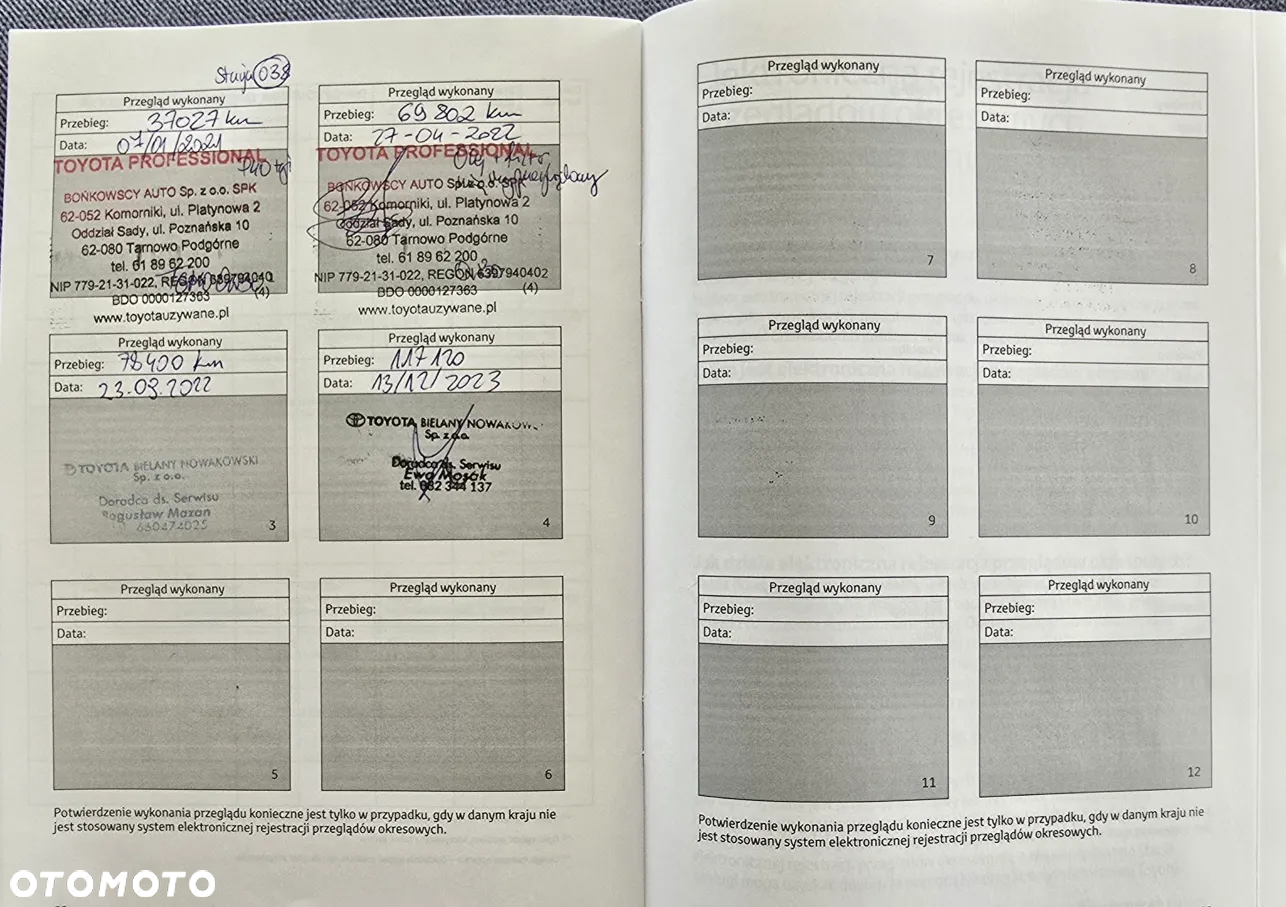 Stacja 038
Przegląd wykonany
Przebieg: 37027 km
Data: 07/01/2021
TOYOTA PROFESSIONAL
BOŃKOWSCY AUTO Sp. z o.o. SPK
62-052 Komorniki, ul. Platynowa 2
Oddział Sady, ul. Poznańska 10
62-080 Tarnowo Podgórne
tel. 61 89 62 200
NIP 779-21-31-022, REGON 639794040
BDO 0000127363 (4)
www.toyotauzywane.pl
Przegląd wykonany
Przebieg: 69 802 km
Data: 27-04-2022
TOYOTA PROFESSIONAL
Olej + filtr
BOŃKOWSCY AUTO Sp. z o.o. SPK
62-052 Komorniki, ul. Platynowa 2
Oddział Sady, ul. Poznańska 10
62-080 Tarnowo Podgórne
tel. 61 89 62 200
NIP 779-21-31-022, REGON 6397940402
BDO 0000127363 (4)
www.toyotauzywane.pl
Przegląd wykonany
Przebieg: 78400 km
Data: 23.09.2022
TOYOTA BIELANY NOWAKOWSKI
Sp. z o.o.
Doradca ds. Serwisu
Bogusław Mazan
660474025
3
Przegląd wykonany
Przebieg: 117120
Data: 13/12/2023
TOYOTA BIELANY NOWAKOW
Sp. z o.o.
Doradca ds. Serwisu
Ewa Mosák
tel. 882 344 137
4
Przegląd wykonany
Przebieg:
Data:
5
Przegląd wykonany
Przebieg:
Data:
6
Potwierdzenie wykonania przeglądu konieczne jest tylko w przypadku, gdy w danym kraju nie
jest stosowany system elektronicznej rejestracji przeglądów okresowych.
Przegląd wykonany
Przebieg:
Data:
7
Przegląd wykonany
Przebieg:
Data:
8
Przegląd wykonany
Przebieg:
Data:
9
Przegląd wykonany
Przebieg:
Data:
10
Przegląd wykonany
Przebieg:
Data:
11
Przegląd wykonany
Przebieg:
Data:
12
Potwierdzenie wykonania przeglądu konieczne jest tylko w przypadku, gdy w danym kraju nie
jest stosowany system elektronicznej rejestracji przeglądów okresowych.
OTOMOTO